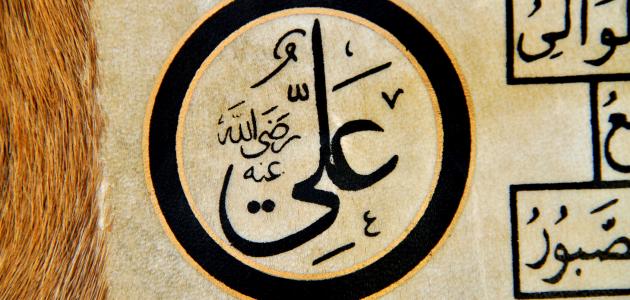 عَلِيّ
رَضِيَ اللّٰهُ
عنه
لوَالِىُ
عُ
صَّبُورُ